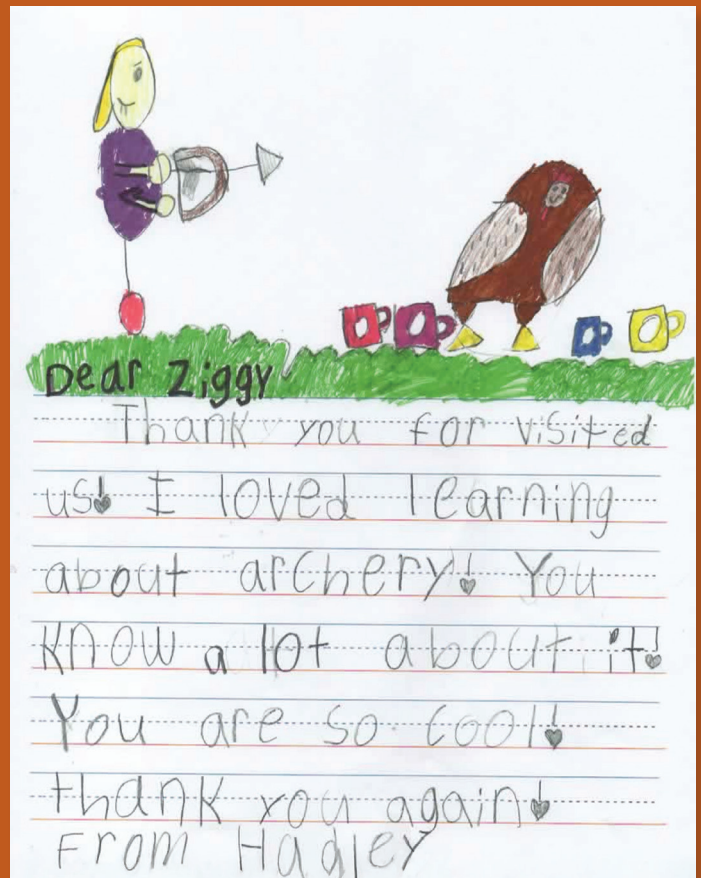 Dear Ziggy
Thank you for visited
us! I loved learning
about archery! You
know a lot about it!
You are so cool!
thank you again!
From Hadley